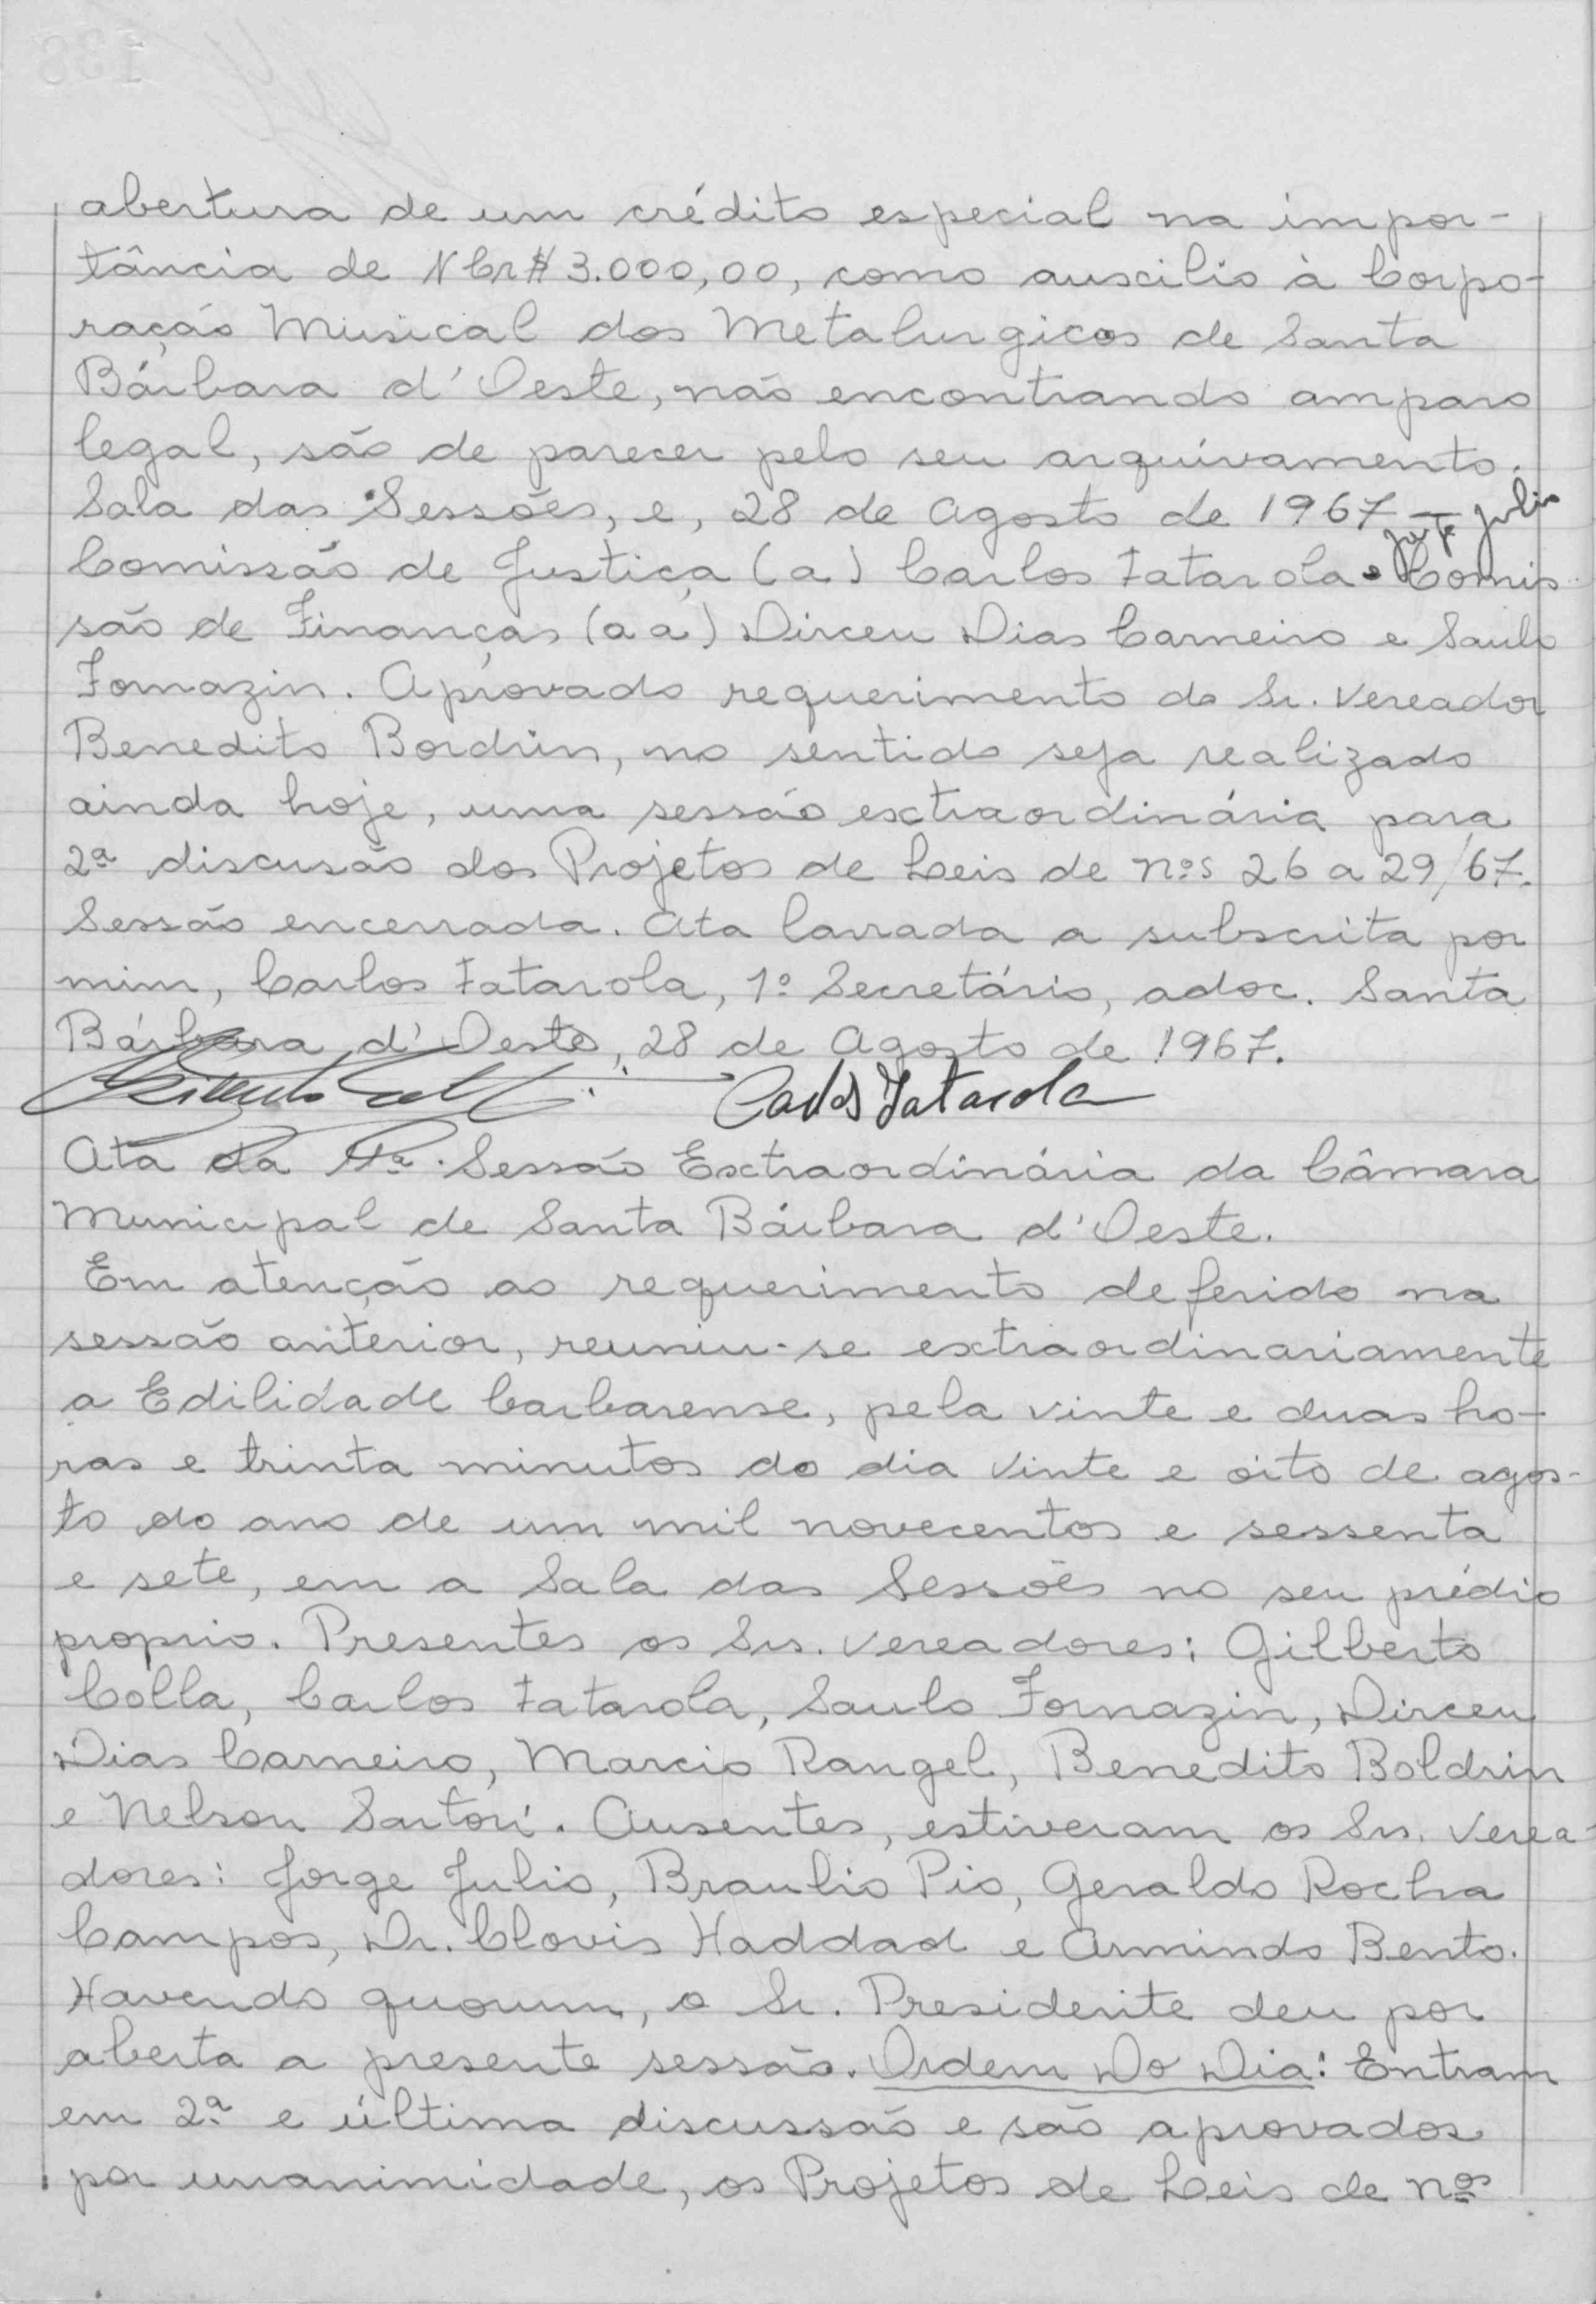 abertura de um crédito especial na impor-
tância de NCr$ 3.000,00, como auscilio à Corpo-
ração Musical dos Metalurgicos de Santa
Bárbara d'Oeste, não encontrando amparo
legal, são de parecer pelo seu arquivamento.
Sala das Sessões, e, 28 de Agosto de 1967 —
Jorge Julio
Comissão de Justiça (a) Carlos Fatarola e Comis
são de Finanças (aa) Dirceu Dias Carneiro e Saulo
Fornazin. Aprovado requerimento do Sr. Vereador
Benedito Bordrin, no sentido seja realizado
ainda hoje, uma sessão extraordinária para
2ª discusão dos Projetos de Leis de nºs 26 a 29/67.
Sessão encerrada. Ata lavrada a subscrita por
mim, Carlos Fatarola, 1º Secretário, adoc. Santa
Bárbara d'Oeste, 28 de Agosto de 1967.
Carlos Fatarola
Ata da Sessão Extraordinária da Câmara
Municipal de Santa Bárbara d'Oeste.
Em atenção ao requerimento deferido na
sessão anterior, reuniu-se extraordinariamente
a Edilidade barbarense, pela vinte e duas ho-
ras e trinta minutos do dia vinte e oito de agos-
to do ano de um mil novecentos e sessenta
e sete, em a Sala das Sessões no seu prédio
proprio. Presentes os Srs. Vereadores: Gilberto
Colla, Carlos Fatarola, Saulo Fornazin, Dirceu
Dias Carneiro, Marcio Rangel, Benedito Boldrin
e Nelson Sartori. Ausentes, estiveram os Srs. Verea-
dores: Jorge Julio, Braulio Pio, Geraldo Rocha
Campos, Dr. Clovis Haddad e Armindo Bento.
Havendo quorum, o Sr. Presidente deu por
aberta a presente sessão. Ordem Do Dia: Entram
em 2ª e última discussão e são aprovados
por unanimidade, os Projetos de Leis de nºs